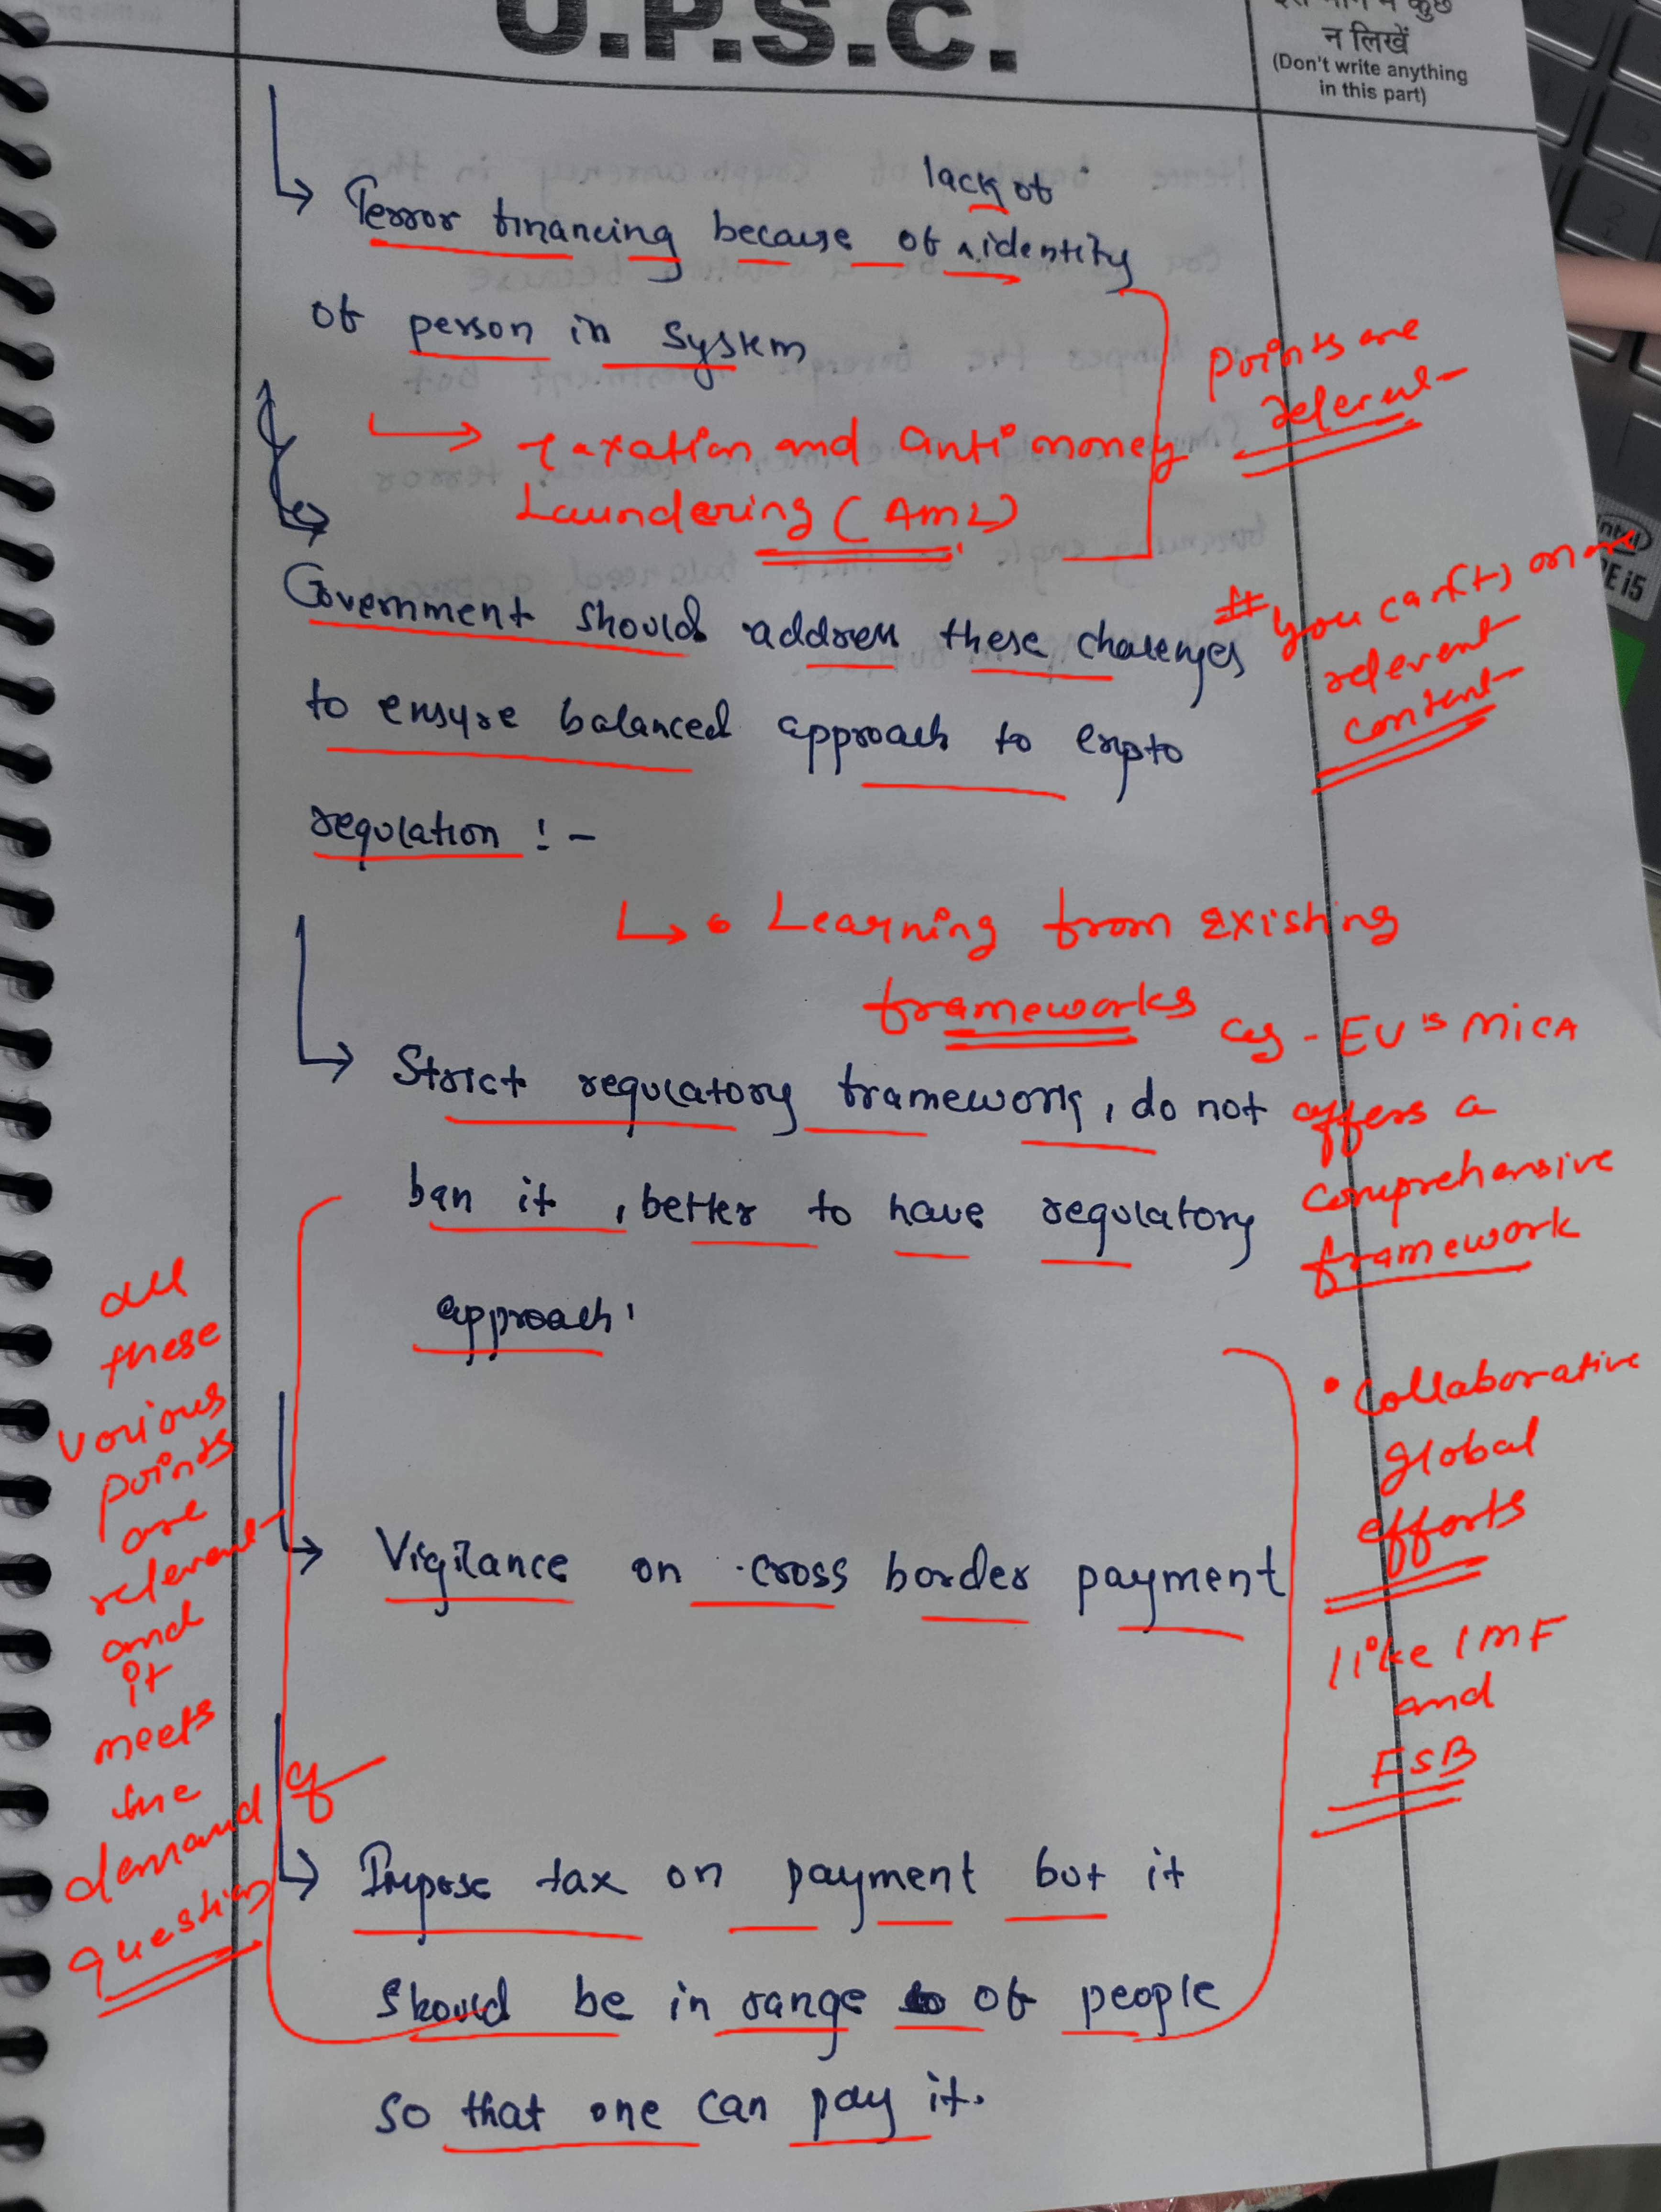 U.P.S.C.
न लिखें
(Don't write anything
in this part)
lack of
Terror financing because of ^ identity
of person in system
Points are
relevent
→ taxation and Anti money
Laundering (AML)
Government should address these challenges
# you can (+) more
relevent
content
to ensure balanced approach to crypto
regulation : -
→ • Learning from existing
frameworks eg - EU's MiCA
offers a
comprehensive
framework
→ Strict regulatory framework, do not
ban it, better to have regulatory
approach.
• Collaborative
global
efforts
like IMF
and
FSB
all
these
various
points
are
relevent
and
it
meets
the
demand of
question
→ Vigilance on cross border payment
→ Impose tax on payment but it
should be in range of people
so that one can pay it.
intel
i5